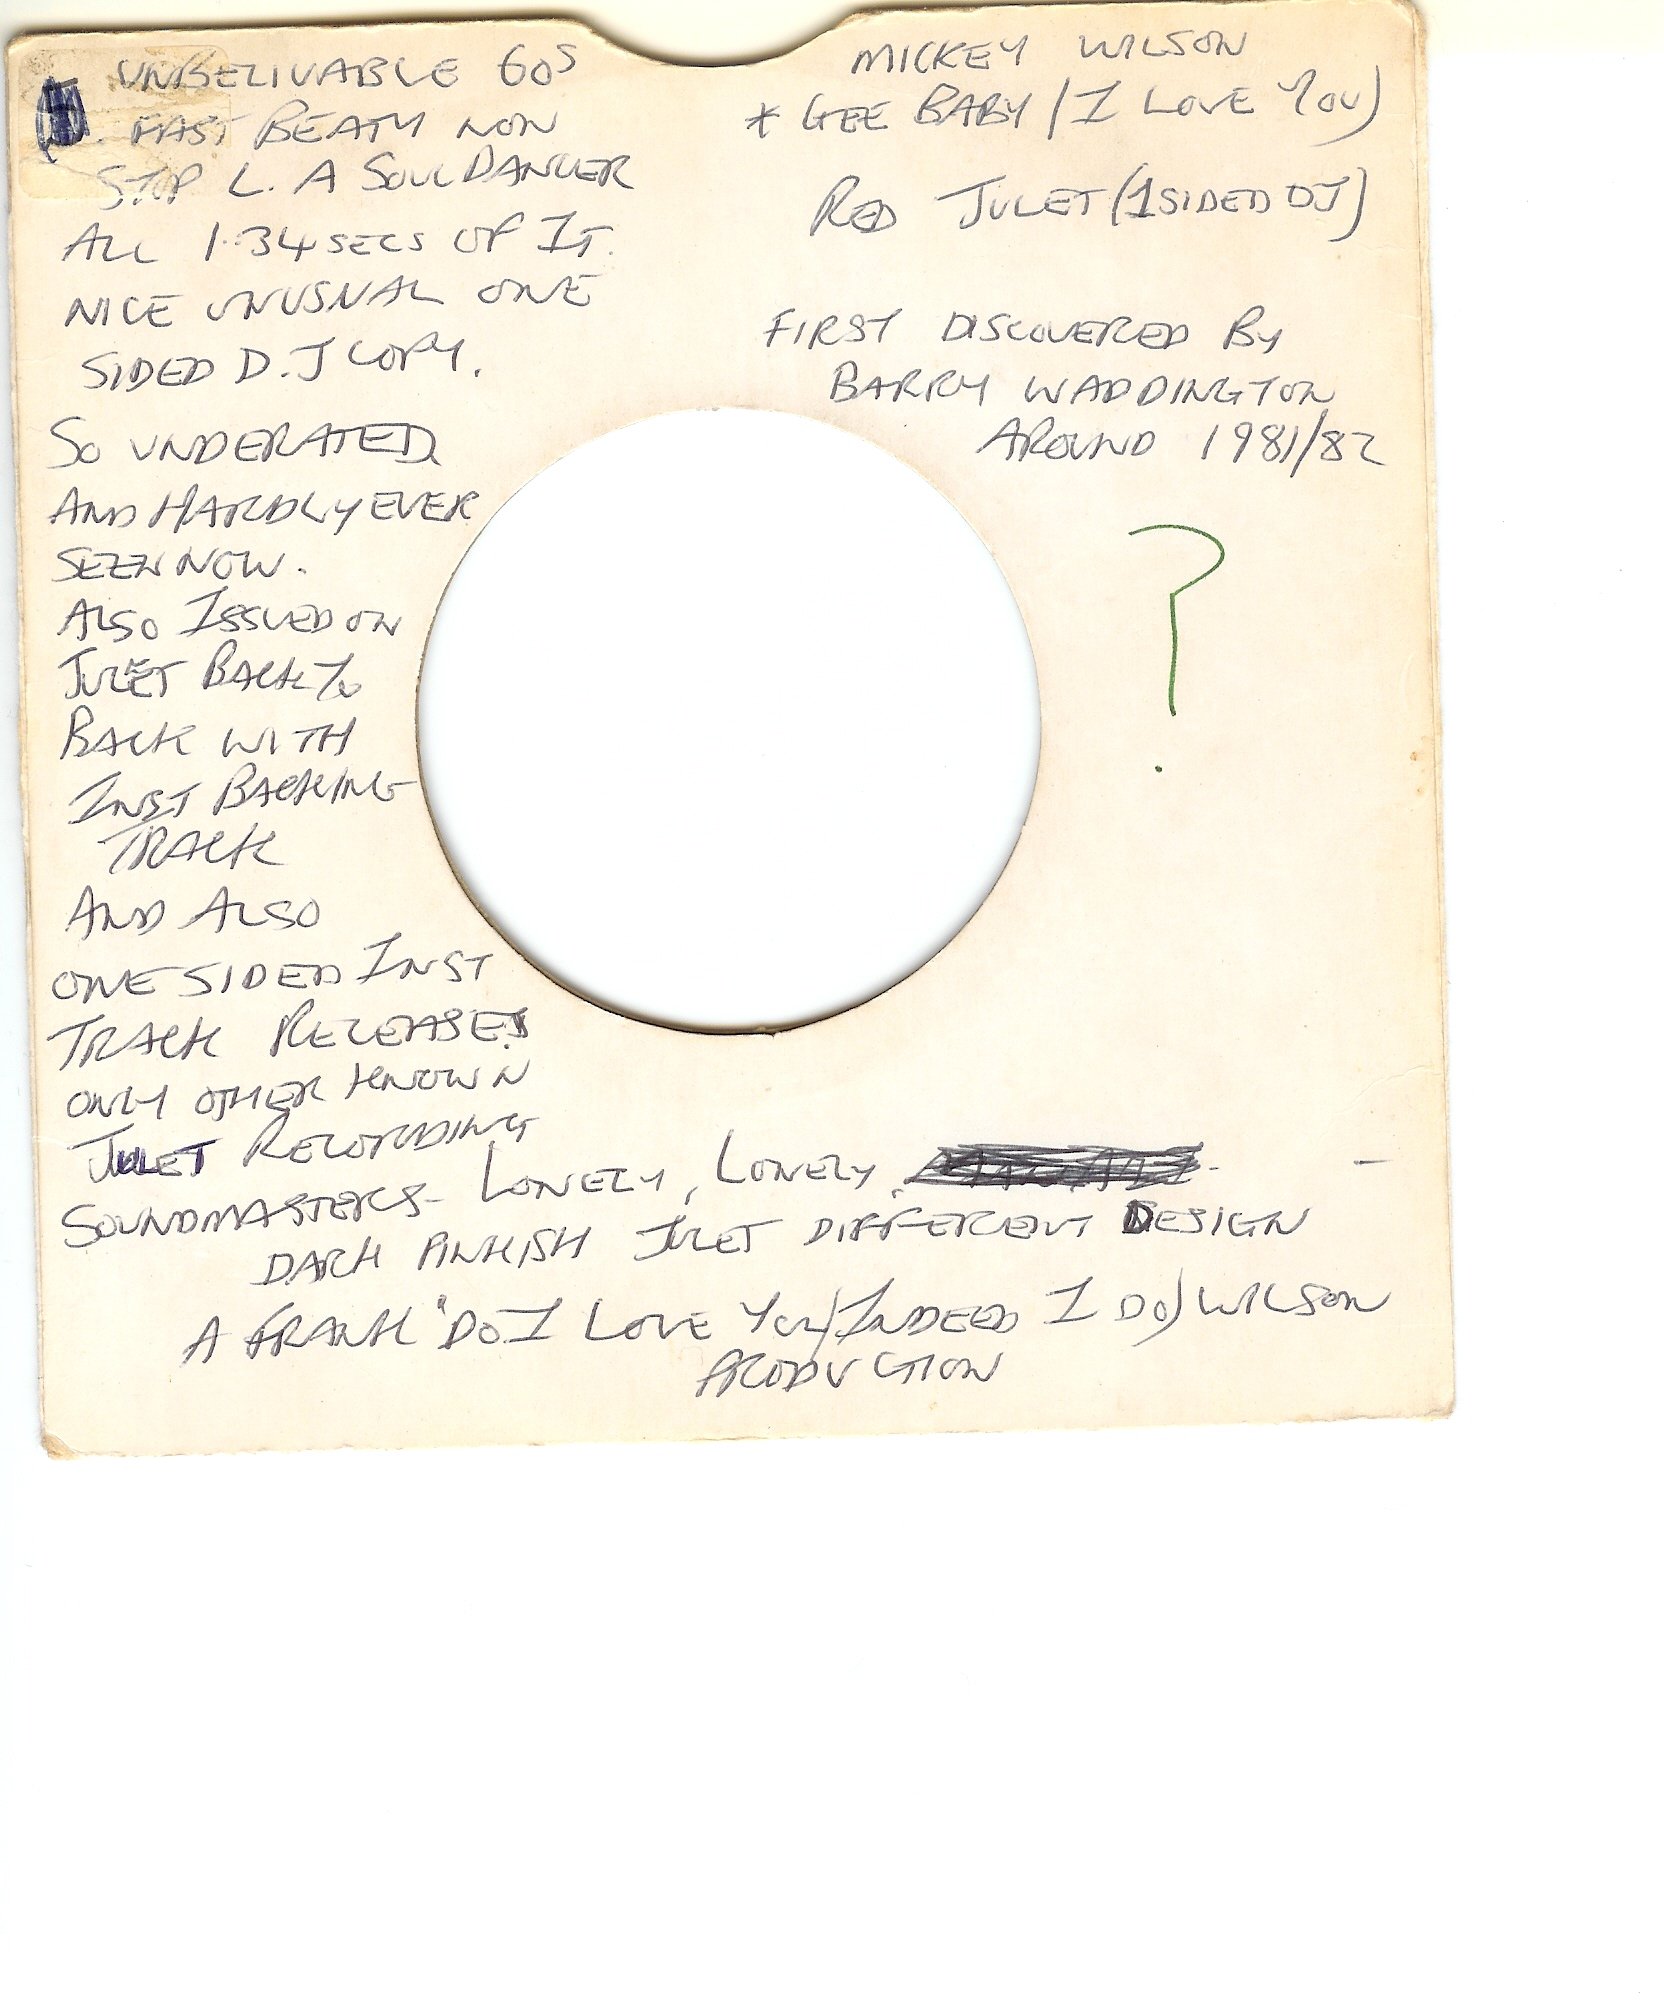 UNBELIVABLE 60S
FAST BEATY NON
STOP L.A SOUL DANCER
ALL 1.34 SECS OF IT.
NICE UNUSUAL ONE
SIDED D.J COPY.
SO UNDERATED
AND HARDLY EVER
SEEN NOW.
ALSO ISSUED ON
JULET BACK TO
BACK WITH
INST BACKING
TRACK
AND ALSO
ONE SIDED INST
TRACK RELEASE
ONLY OTHER KNOWN
JULET RECORDING
SOUNDMASTERS - LONELY, LONELY
DARK PINKISH JULET DIFFERENT DESIGN
A FRANK "DO I LOVE YOU/INDEED I DO) WILSON
PRODUCTION
MICKEY WILSON
* GEE BABY / I LOVE YOU)
RED JULET (1 SIDED DJ)
FIRST DISCOVERED BY
BARRY WADDINGTON
AROUND 1981/82
?